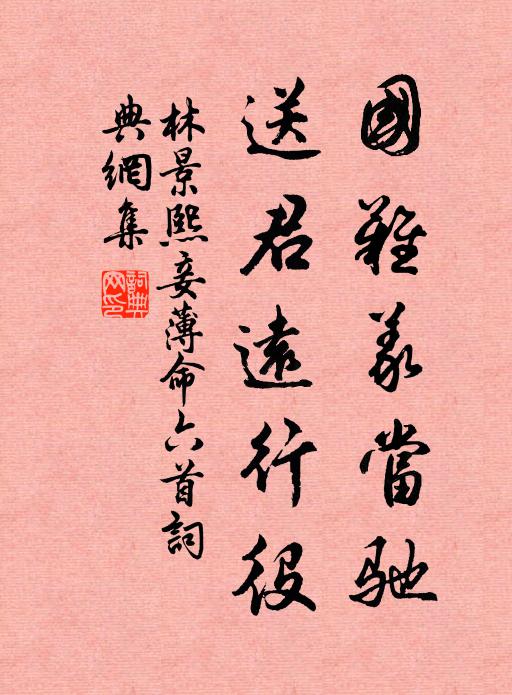 國難義當馳
送君遠行役
林景熙妾薄命六首詞
典網集
詞典網印